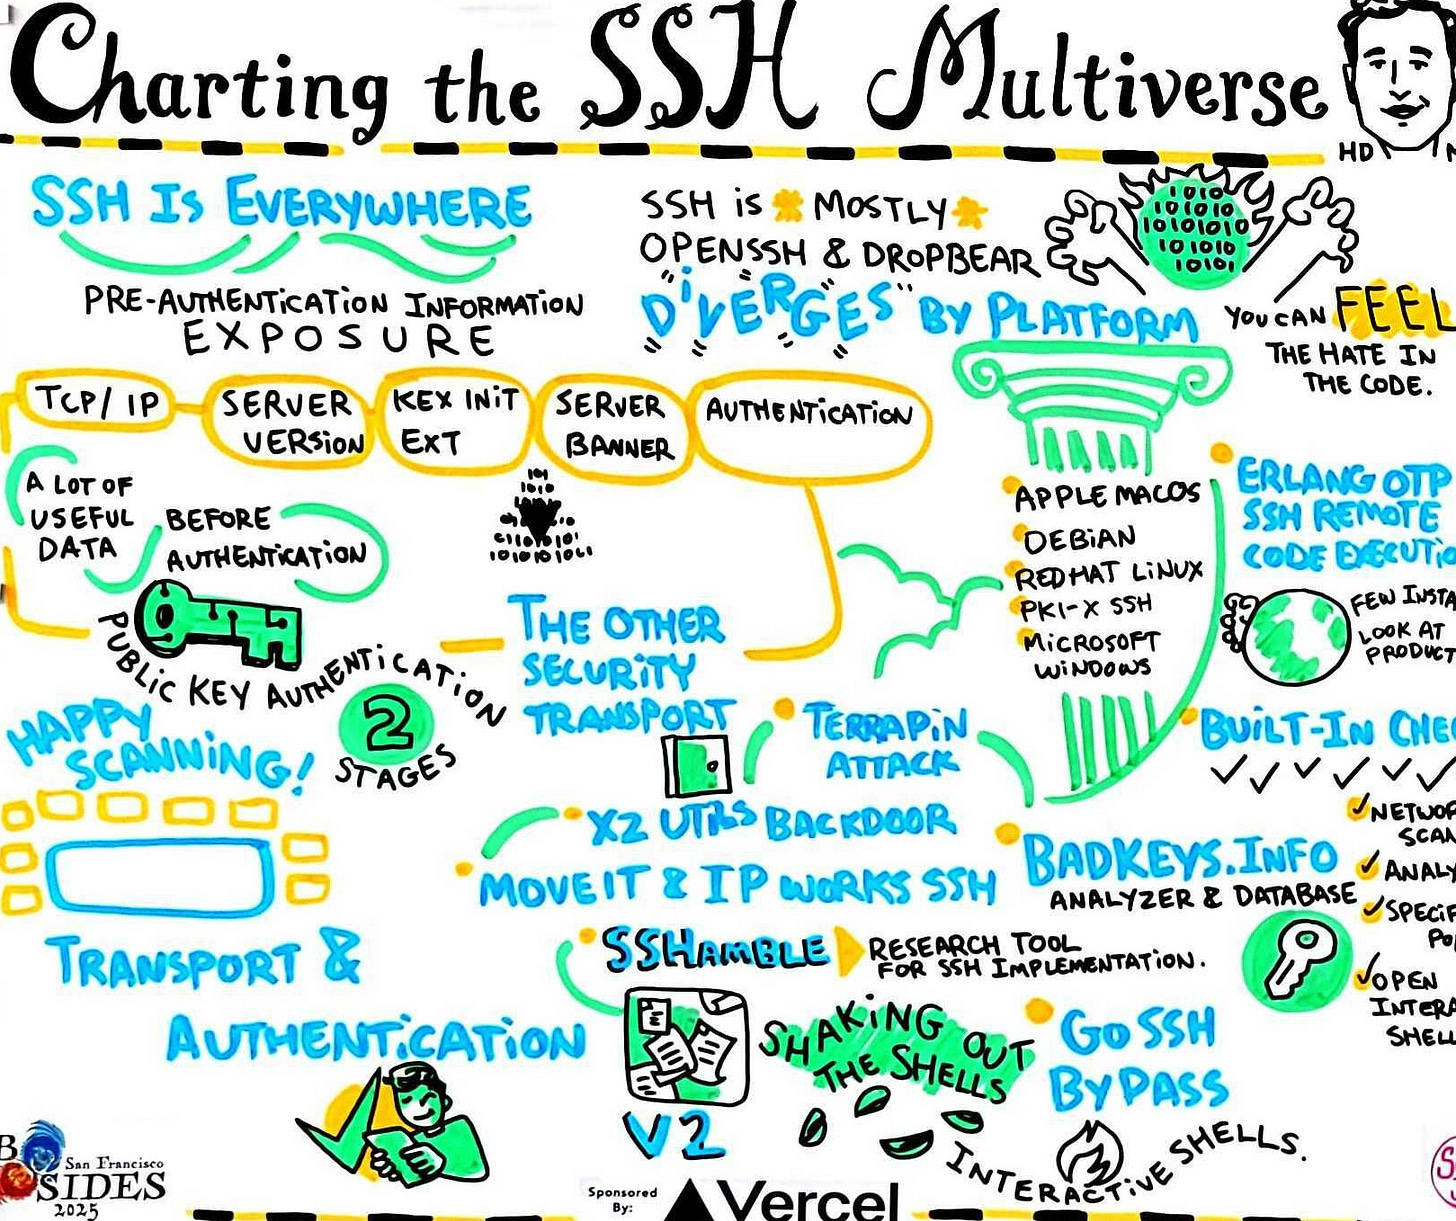 Charting the SSH Multiverse
HD
SSH Is EVERYWHERE
PRE-AUTHENTICATION INFORMATION
EXPOSURE
SSH is MOSTLY
OPENSSH & DROPBEAR
DIVERGES BY PLATFORM
1010
101010
10101010
101010
10101
YOU CAN FEEL
THE HATE IN
THE CODE.
TCP/IP
SERVER
VERSION
KEX INIT
EXT
SERVER
BANNER
AUTHENTICATION
A LOT OF
USEFUL
DATA
BEFORE
AUTHENTICATION
PUBLIC KEY AUTHENTICATION
2
STAGES
THE OTHER
SECURITY
TRANSPORT
APPLE MACOS
DEBIAN
REDHAT LINUX
PKI-X SSH
MICROSOFT
WINDOWS
ERLANG OTP
SSH REMOTE
CODE
FEW
LOOK AT
HAPPY
SCANNING!
TERRAPIN
ATTACK
X2 UTILS BACKDOOR
MOVEIT & IP WORKS SSH
BUILT-IN
BADKEYS.INFO
ANALYZER & DATABASE
OPEN
TRANSPORT &
AUTHENTICATION
SSHAMBLE
RESEARCH TOOL
FOR SSH IMPLEMENTATION.
V2
SHAKING OUT
THE SHELLS
GO SSH
BYPASS
INTERACTIVE SHELLS.
San Francisco
SIDES
2025
Sponsored
By:
Vercel